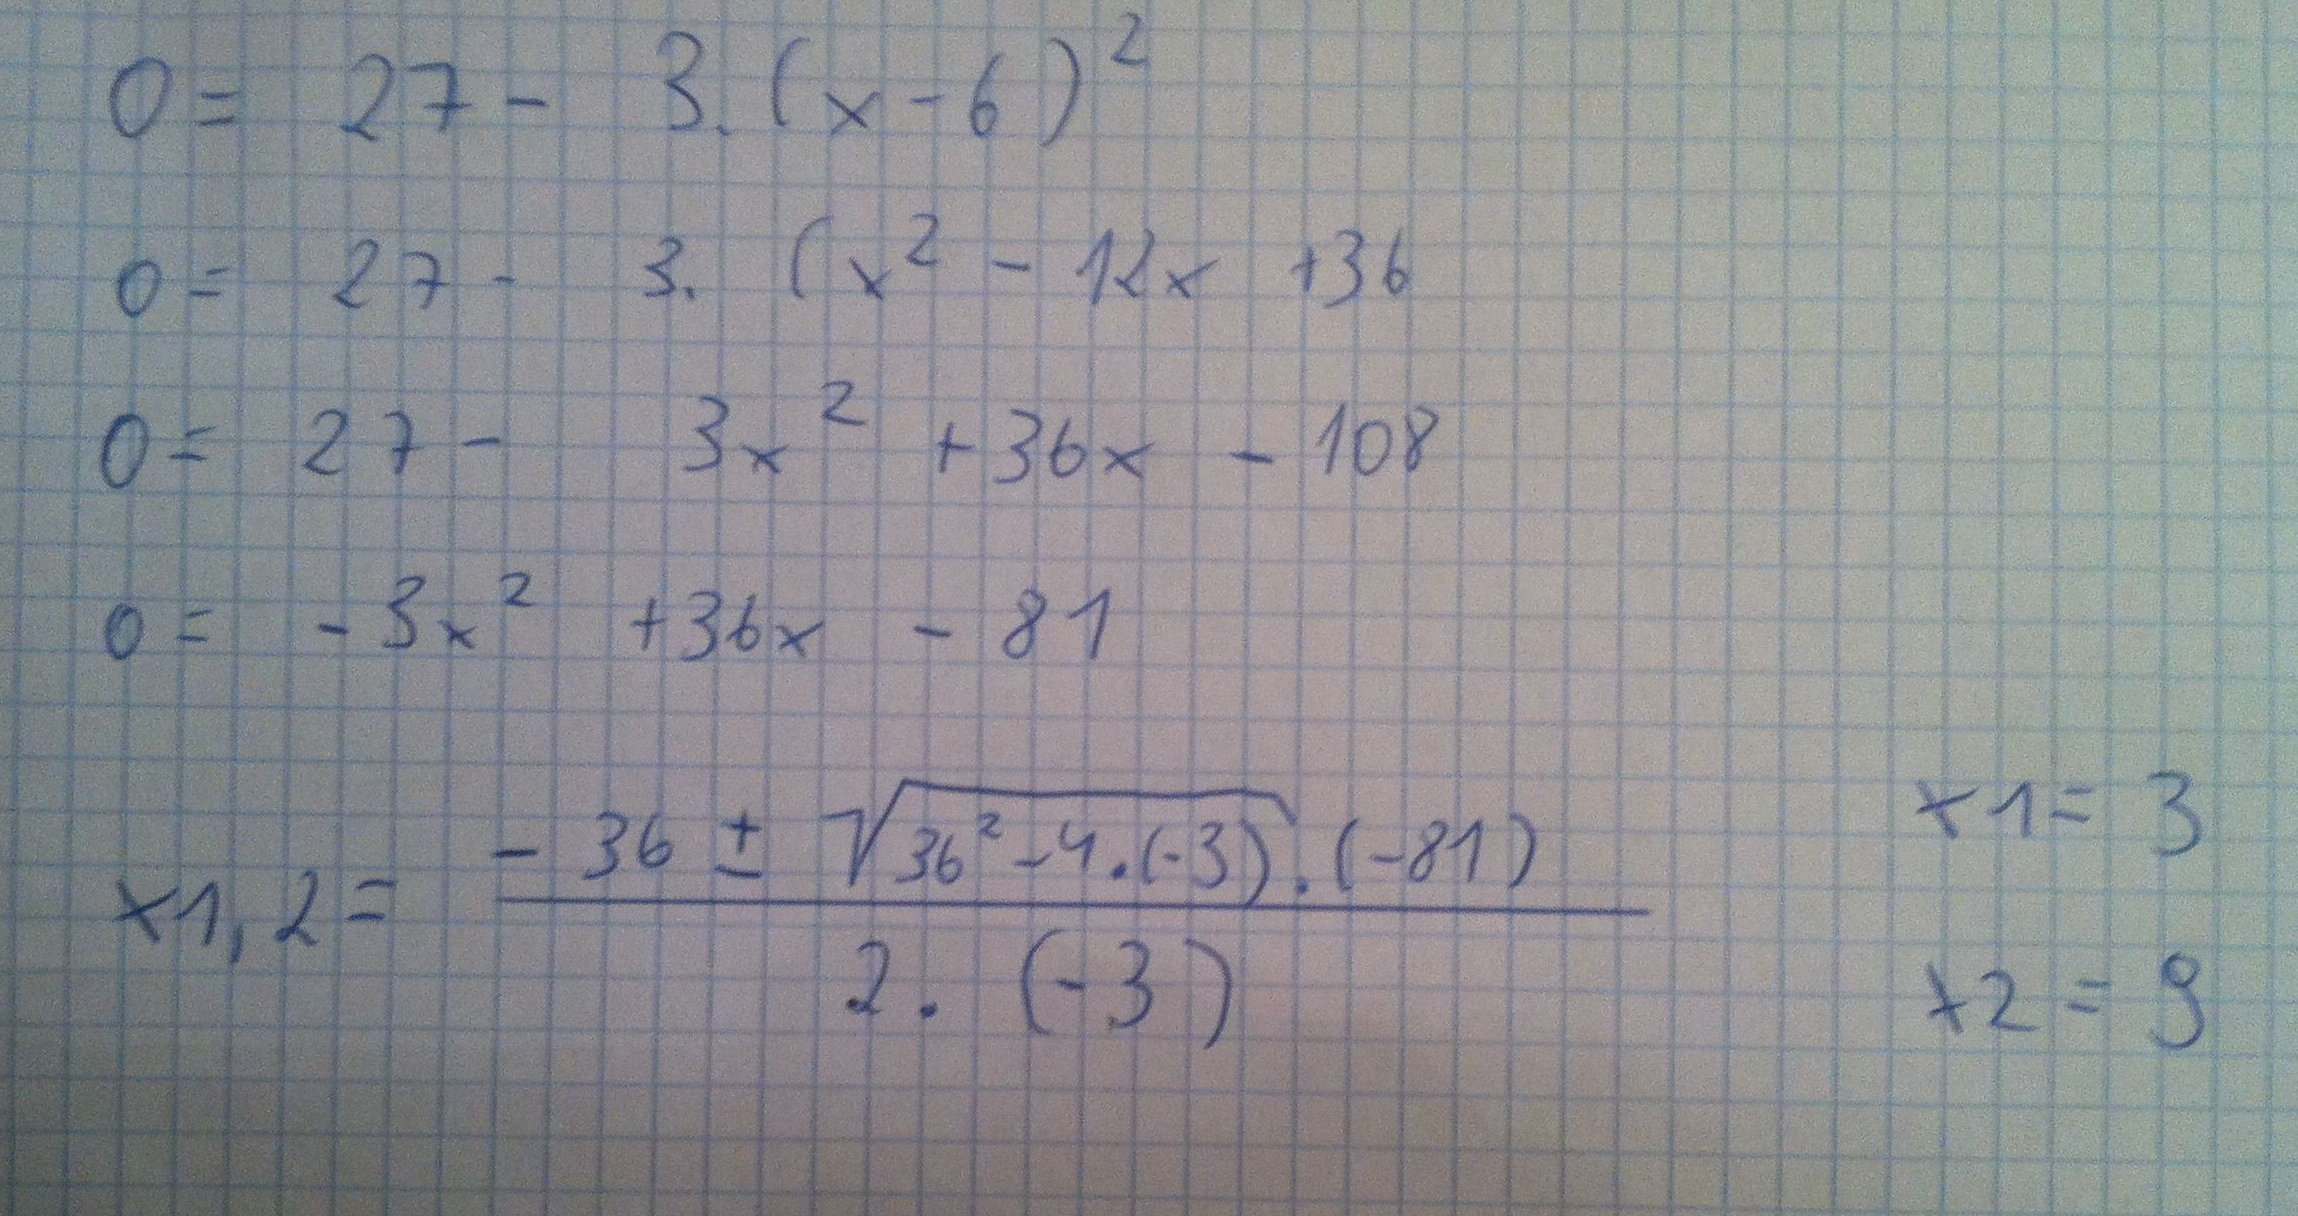 0 = 27 - 3.(x - 6)²
0 = 27 - 3. (x² - 12x +36
0 = 27 - 3x² +36x - 108
0 = -3x² +36x - 81
x1,2 = (-36 ± √(36² - 4.(-3)).(-81)) / (2.(-3))
x1 = 3
x2 = 9